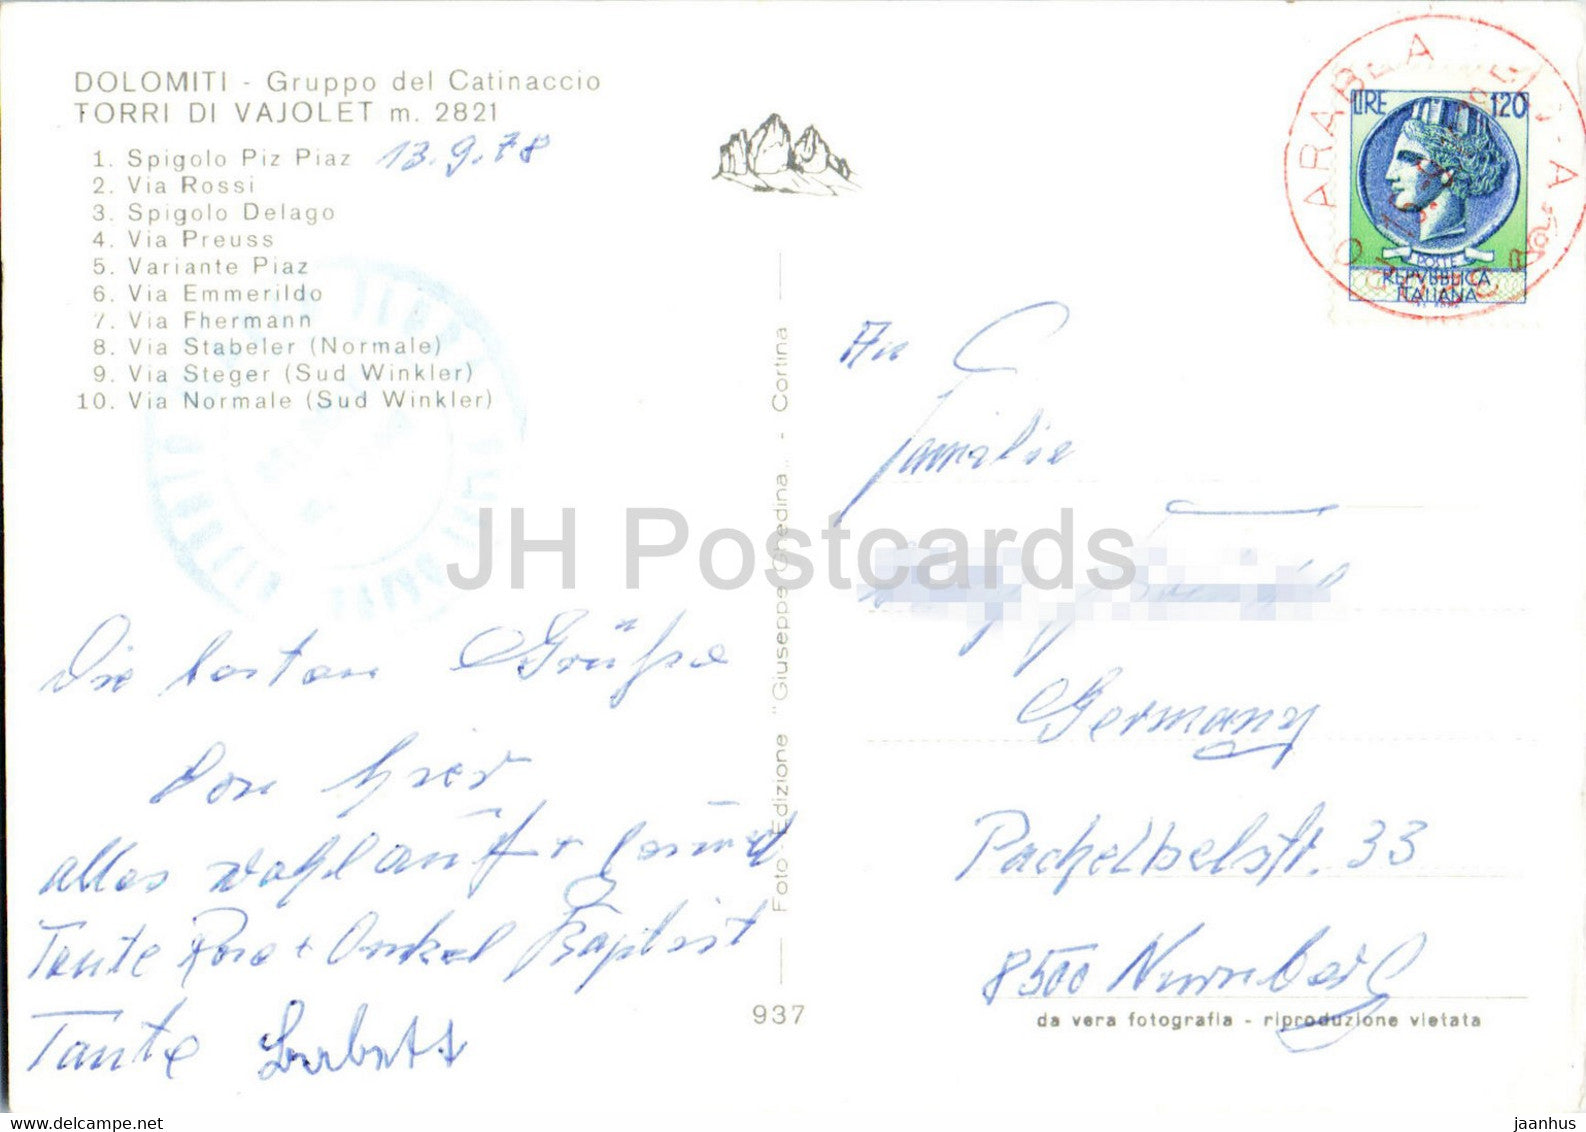 DOLOMITI - Gruppo del Catinaccio
TORRI DI VAJOLET m. 2821
1. Spigolo Piz Piaz
13.9.78
2. Via Rossi
3. Spigolo Delago
4. Via Preuss
5. Variante Piaz
6. Via Emmerildo
7. Via Fhermann
8. Via Stabeler (Normale)
9. Via Steger (Sud Winkler)
10. Via Normale (Sud Winkler)
Die besten Grüße
von hier
alles wohlauf + gesund
Tante Rosa + Onkel Baptist
Tante Babett
Foto Edizione "Giuseppe Ghedina" - Cortina
937
ARABBA
LIRE 120
POSTE
REPVBBLICA
ITALIANA
An
Familie
Germany
Pachelbelstr. 33
8500 Nürnberg
da vera fotografia - riproduzione vietata
JH Postcards
hippostcard.com
jaanhus